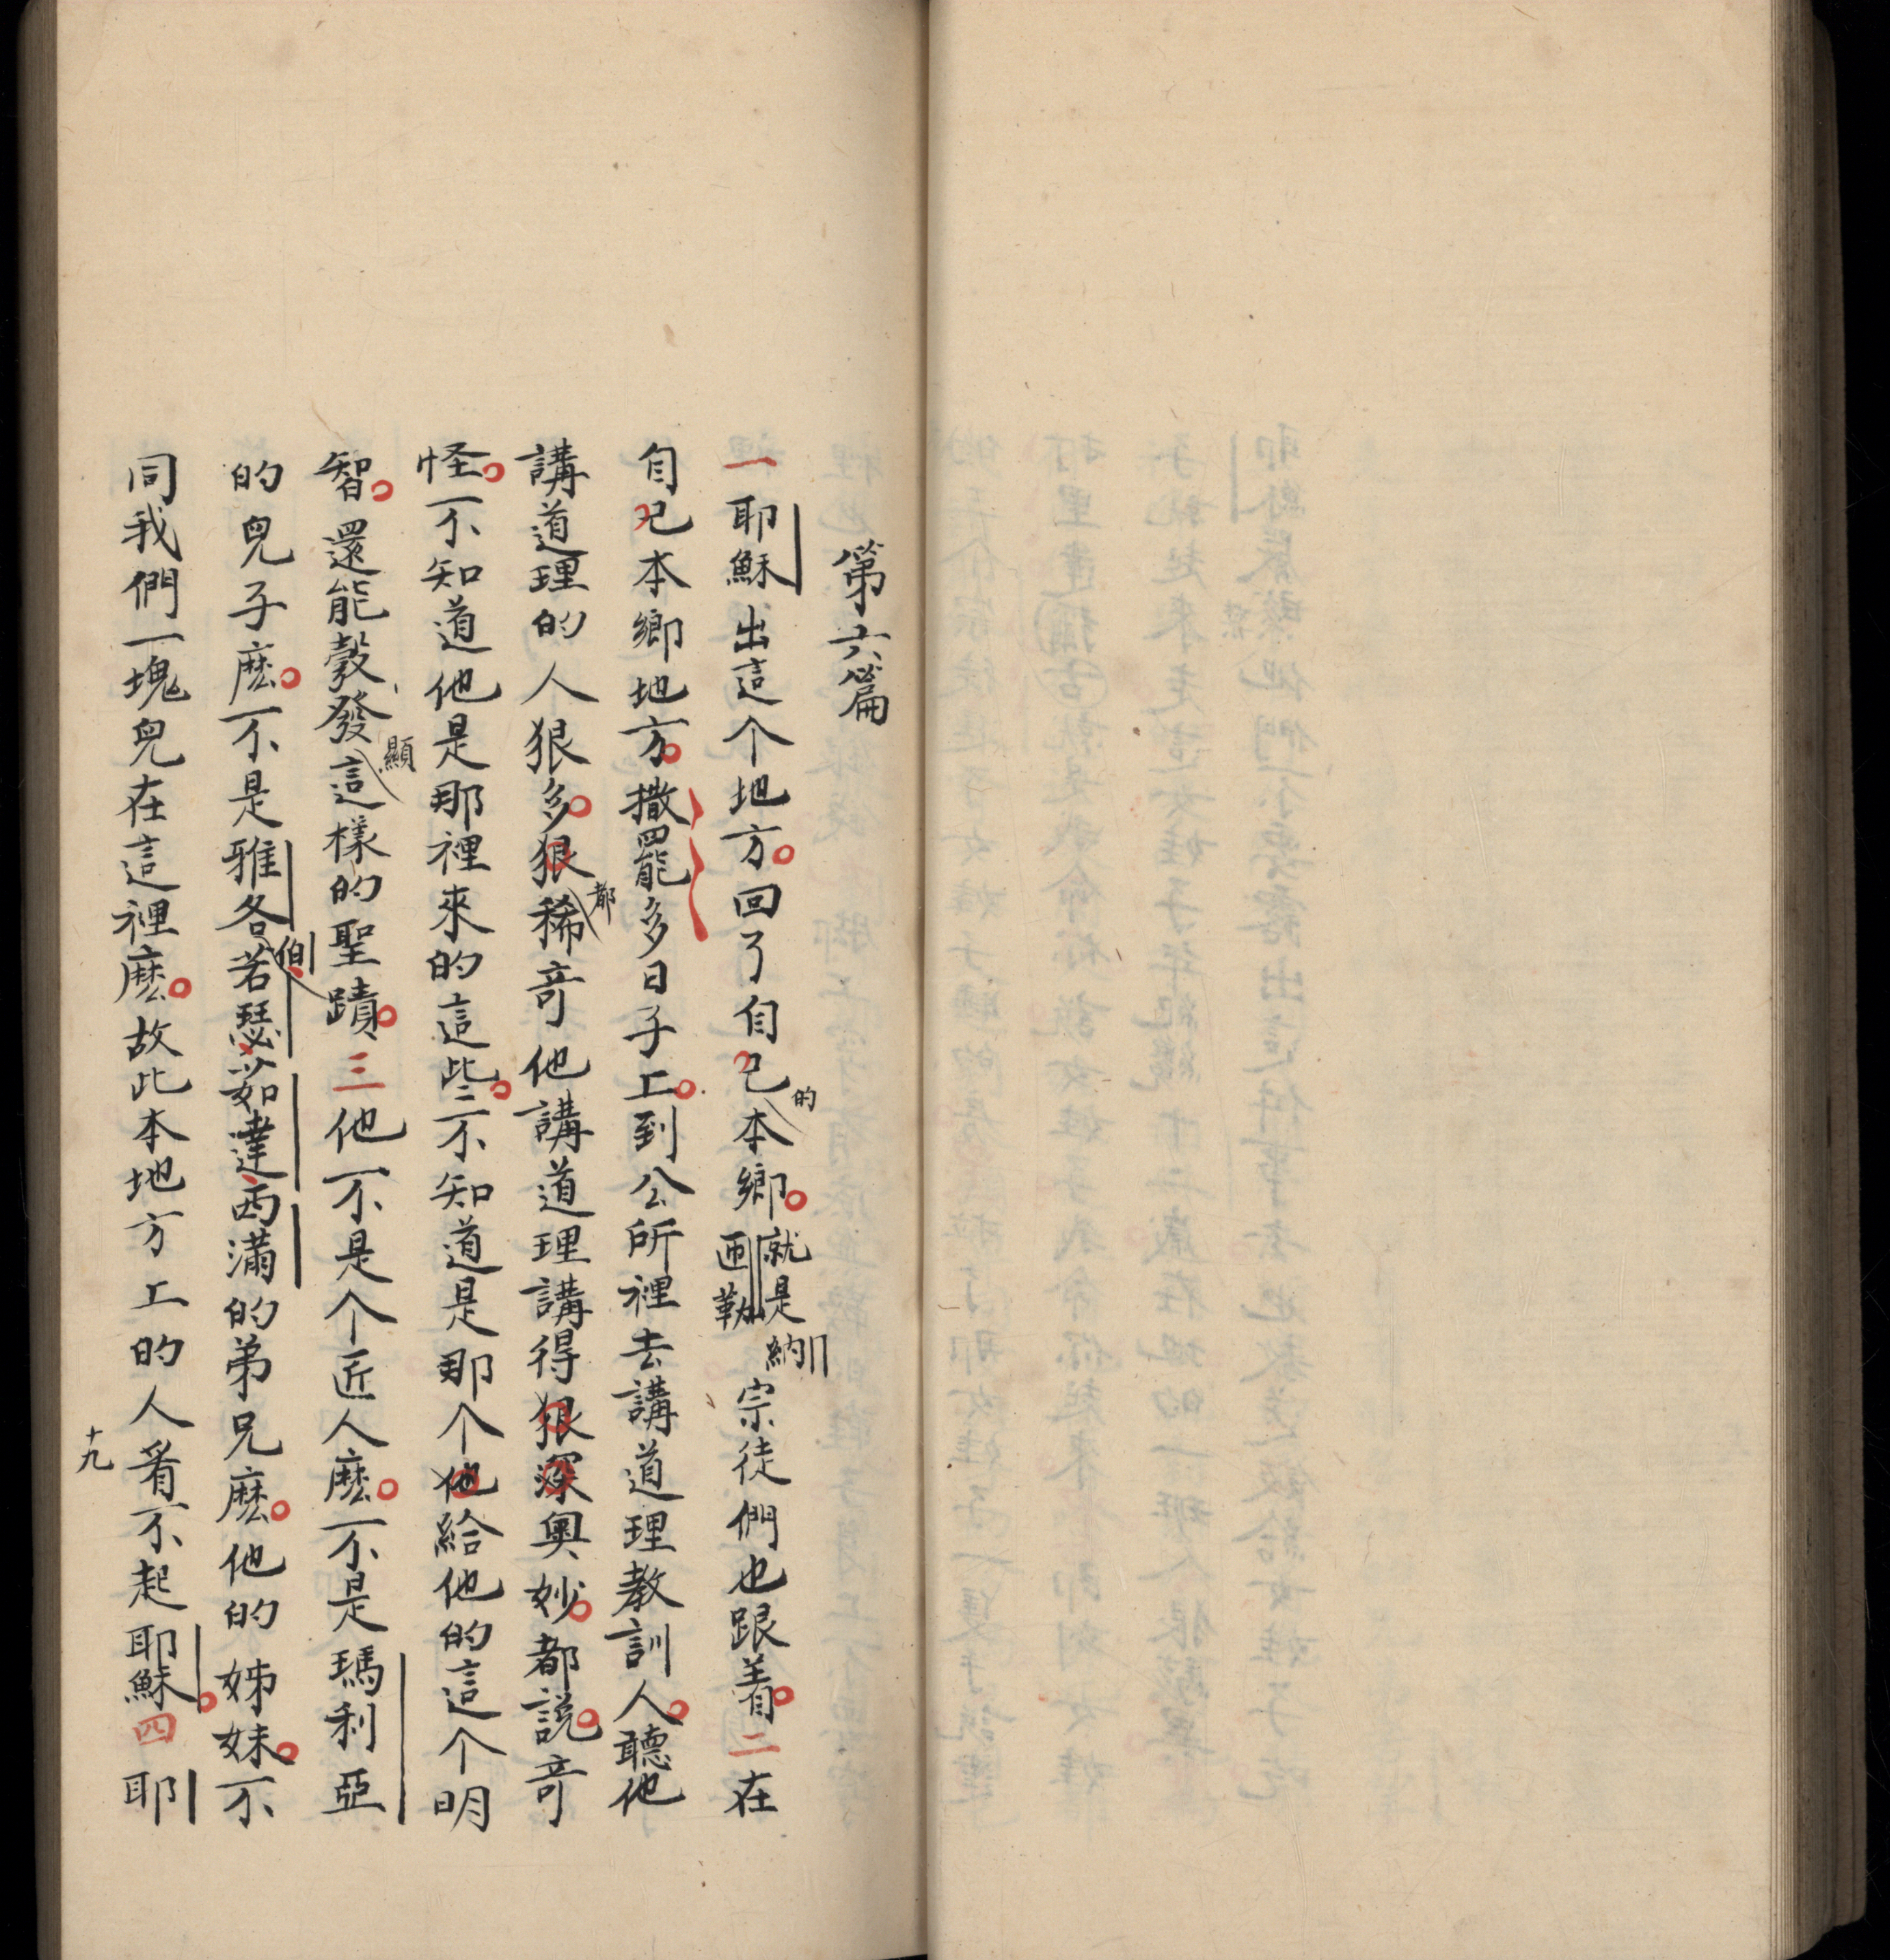 第六篇
一耶穌出這个地方。回了自己的本鄉。就是納匝勒宗徒們也跟着。二在
自己本鄉地方。撒罷多日子上。到公所裡去講道理教訓人。聽他
講道理的人狠多。狠都稀奇他講道理講得狠深奧妙。都說。奇
怪。不知道他是那裡來的這些。不知道是那个他給他的這个明
智。還能彀發顯這樣的聖蹟。三他不是个匠人麽。不是瑪利亞
的兒子麽。不是雅各伯若瑟茹達西滿的弟兄麽。他的姊妹。不
同我們一塊兒在這裡麽。故此本地方上的人看不起耶穌。四耶
十九